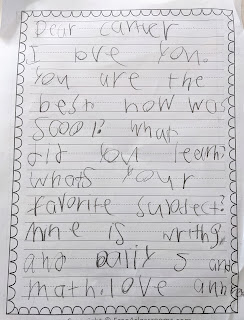 Dear carter
I love you.
You are the
best how was
Scool? what
did you learn?
whats your
favorite subject?
mine is writing,
and daily 5 and
math. love